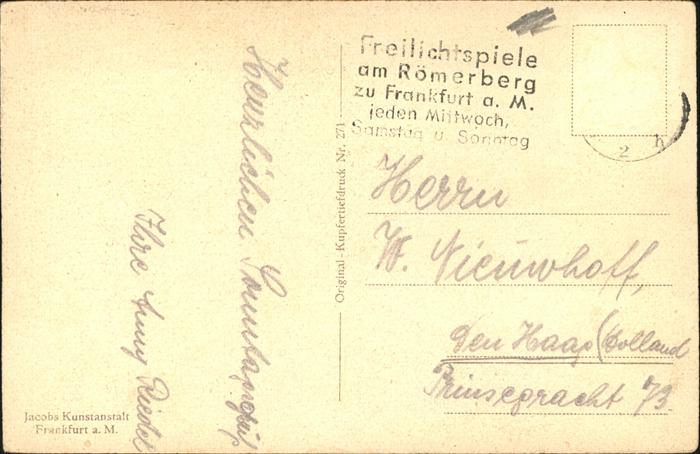 Herzlichen Sonntagsgruß
Ihre Anny Riedel
Jacobs Kunstanstalt
Frankfurt a. M.
Original-Kupfertiefdruck Nr. 271
Freilichtspiele
am Römerberg
zu Frankfurt a. M.
jeden Mittwoch,
Samstag u. Sonntag
2 K
Herrn
W. Nieuwhoff,
Den Haag (Holland
Prinsegracht 73.